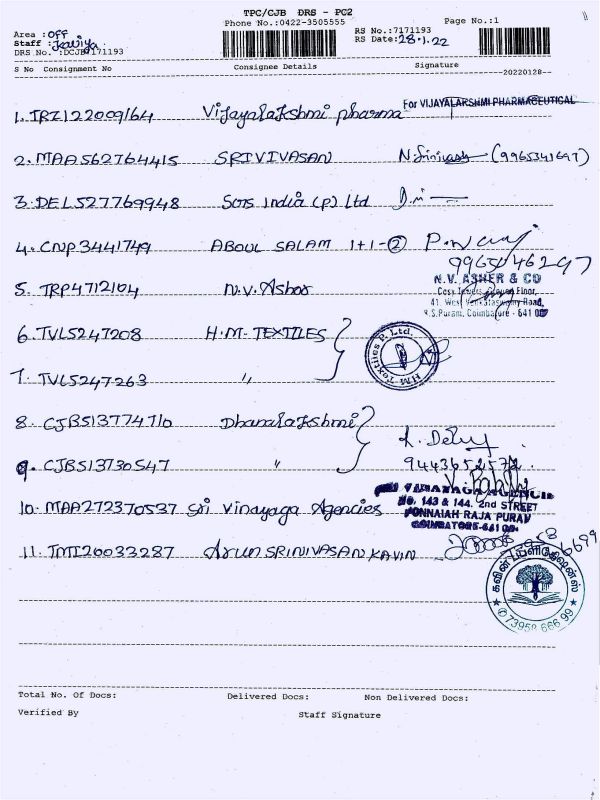 TPC/CJB DRS - PC2
Phone No.:0422-3505555
Page No.:1
Area : Off
Staff : Kaviya
DRS No. :DCJB7171193
RS No.:7171193
RS Date:28.1.22
S No Consignment No Consignee Details Signature
20220128
1. TRZ122009164 Vijayalakshmi pharma For VIJAYALAKSHMI PHARMACEUTICAL
2. MAA562764415 SRIVIVASAN N.Srinivash (9965341697)
3. DEL527769948 Scns India (P) Ltd
4. CNP3441749 ABOUL SALAM 1+1-②
9965046297
5. TRP4712104 N.V. Asher
N.V. ASHER & CO
Floor,
41, West Venkataswamy Road,
R.S.Puram, Coimbatore - 641 002
6. TVL5247208 H.M- TEXTILES
HM Textiles P. Ltd.
7. TVL5247263 "
8. CJB513774710 Dhanalakshmi
9. CJB513730547 "
9443652572
10. MAA272370537 Sri Vinayaga Agencies
VINAYAGA AGENCIES
No. 143 & 144, 2nd STREET
PONNAIAH RAJA PURAM
COIMBATORE-641 001.
11. TMI20033287 Arun SRINIVASAN KAVIN
கவின் பப்ளிகேஷன்ஸ்
✆ 73958 666 99
Total No. Of Docs: Delivered Docs: Non Delivered Docs:
Verified By Staff Signature